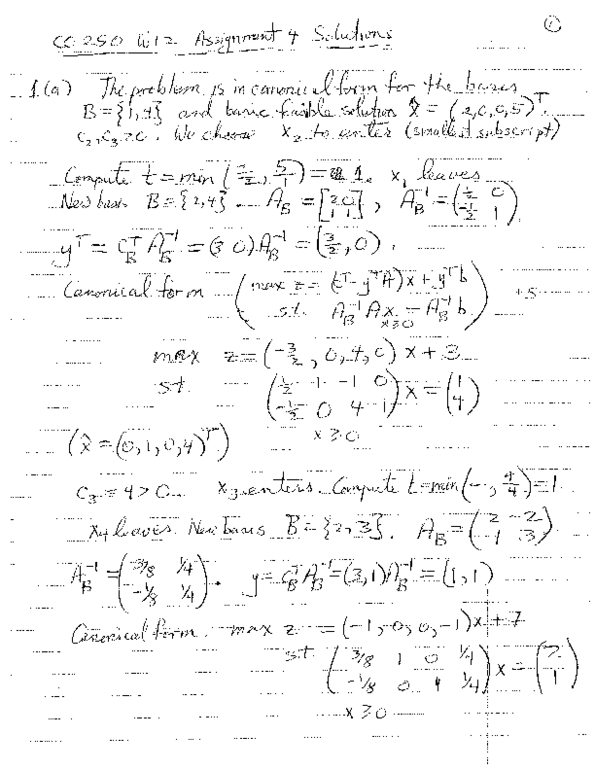 ①
CO 250 W12 Assignment 4 Solutions
1.(a) The problem is in canonical form for the basis
B={1,4} and basic feasible solution x̂ = (2,0,0,5)ᵀ.
c₂,c₃>0. We choose x₂ to enter (smallest subscript)
Compute t=min(2/2, 5/1)=1. x₁ leaves
New basis B={2,4}. A_B = [2 0; 1 1], A_B⁻¹=(1/2 0; -1/2 1)
yᵀ = c_Bᵀ A_B⁻¹ = (3 0)A_B⁻¹ = (3/2, 0).
Canonical form (max z = (cᵀ-yᵀA)x + yᵀb
s.t. A_B⁻¹Ax = A_B⁻¹b
x≥0)
max z=(-3/2, 0, 4, 0)x + 3
s.t. (1/2 1 -1 0; -1/2 0 4 1)x = (1; 4)
x≥0
(x̂=(0,1,0,4)ᵀ)
c₃=4>0. x₃ enters. Compute t=min(-, 4/4)=1.
x₄ leaves. New basis B={2,3}. A_B=(2 -2; 1 3).
A_B⁻¹=(3/8 1/4; -1/8 1/4). y=c_Bᵀ A_B⁻¹=(3,1)A_B⁻¹=(1,1)
Canonical form. max z = (-1, 0, 0, -1)x + 7
s.t. (3/8 1 0 1/4; -1/8 0 1 1/4)x = (2; 1)
x≥0